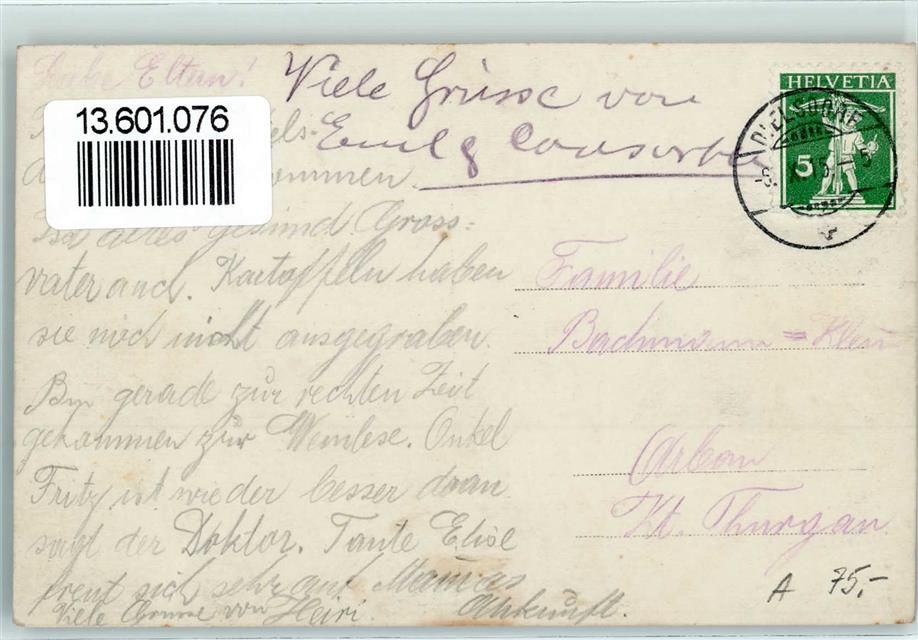 Liebe Eltern!
Viele Grüsse von
Emil & Consorten
13.601.076
kommen.
Ist alles gesund Gross=
vater auch. Kartoffeln haben
sie noch nicht ausgegraben.
Bin gerade zur rechten Zeit
gekommen zur Weinlese. Onkel
Fritz ist wieder besser dran
sagt der Doktor. Tante Elise
freut sich sehr auf Mamas
Ankunft.
Viele Grüsse von Heiri.
HELVETIA
5
DIELSDORF
Familie
Bachmann=Klein
Arbon
Kt. Thurgau
A 75,-